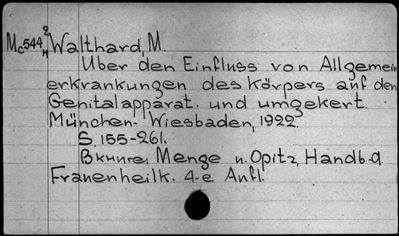 Mc544 2/н Walthard, M.
Über den Einfluss von Allgemein
erkrankungen des Körpers auf den
Genitalapparat. und umgekert.
München. Wiesbaden, 1922.
S. 155-261.
Вкниге, Menge u. Opitz, Handb. d.
Frauenheilk. 4-e Aufl.